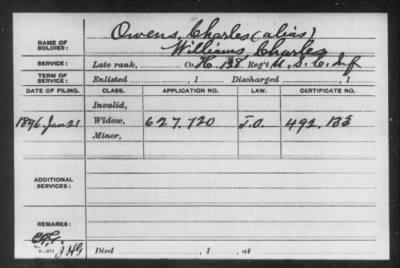 NAME OF SOLDIER: Owens, Charles (alias)
Williams, Charles
SERVICE: Late rank, Co. H. 138 Reg't U. S. C. Inf
TERM OF SERVICE: Enlisted , 1 Discharged , 1
DATE OF FILING. CLASS. APPLICATION NO. LAW. CERTIFICATE NO.
Invalid,
1896, Jan 21 Widow, 627.720 J.O. 492.133
Minor,
ADDITIONAL SERVICES:
REMARKS:
J.H.G
Died , 1 , at